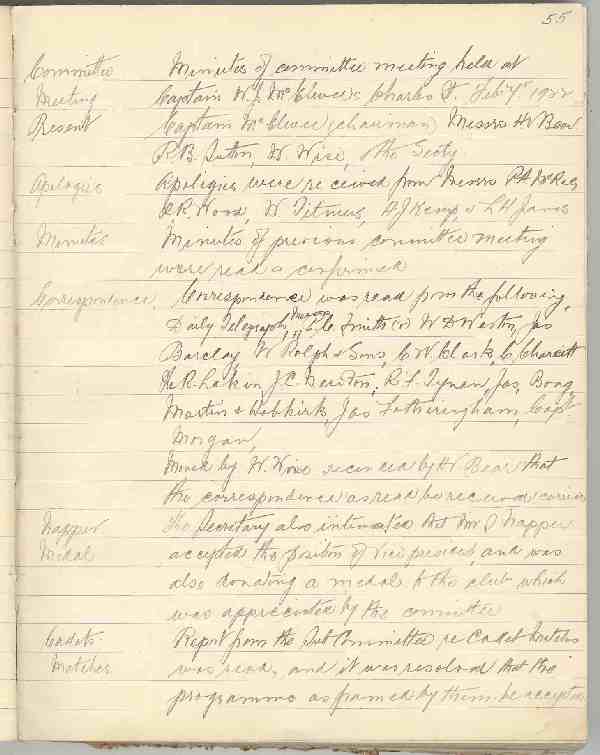 55
Committee Minutes of committee meeting held at
Meeting Captain W.J. McElwee's Charles St. Feb 7th 1922
Present Captain McElwee (chairman) Messrs H Bear
R.B. Sutton, W. Wise, & the Secty.
Apologies Apologies were received from Messrs
R. Wood, W Titmus, A J Kemp, & L H Jarvis
Minutes Minutes of previous committee meeting
were read & confirmed
Correspondence Correspondence was read from the following,
Daily Telegraph, Messrs Smith W D Weston, Jas
Barclay W Rolph & Sons, C W Clark, C.
R. Lakin J.C. R. F. Tynan, Jas, Boag,
Martin & Hobkirk, Jas Fotheringham, Capt
Morgan,
Moved by W. Wise seconded by H Bear that
the correspondence as read be received carried
Napper The Secretary also intimated that Mr Napper
Medal accepted the position of vice president, and was
also donating a medal to the club which
was appreciated by the committee
Cadets Report from the Sub Committee re Cadet Matches
Matches was read, and it was resolved that the
programme as framed by them be accepted